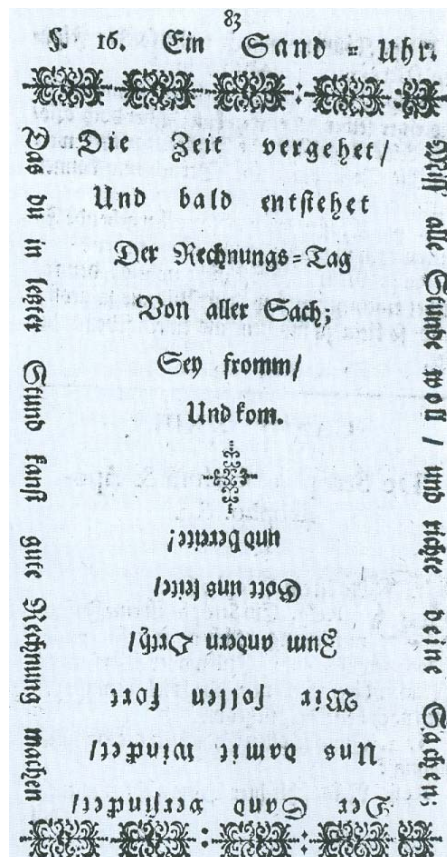 83
§. 16. Ein Sand = Uhr.
Die Zeit vergehet/
Und bald entstehet
Der Rechnungs=Tag
Von aller Sach;
Sey fromm/
Und kom.
Der Sand versincket/
Uns damit wincket/
Wir sollen fort
Zum andern Orth/
Gott uns leite/
und bereite!
Miss alle Stunde woll / und richte deine Sachen:
Das du in letzter Stund kanst gute Rechnung machen